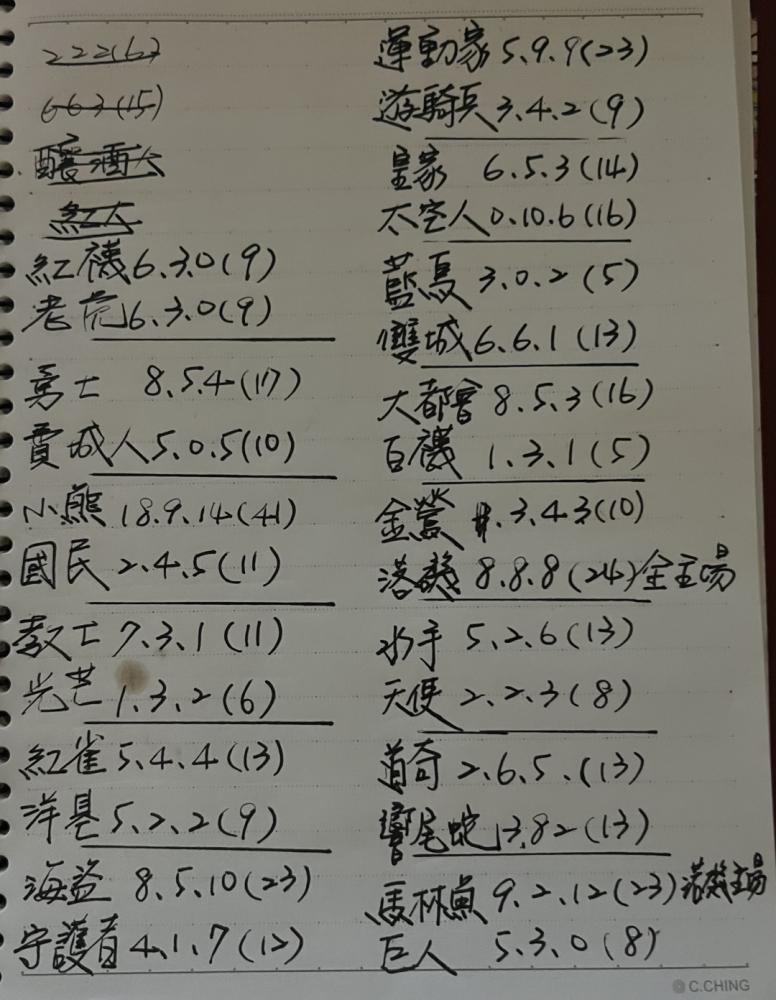 222(6)
663(15)
釀酒人
紅人
紅襪6.3.0(9)
老虎6.3.0(9)
勇士 8.5.4(17)
費城人5.0.5(10)
小熊18.9.14(41)
國民2.4.5(11)
教士7.3.1(11)
光芒1.3.2(6)
紅雀5.4.4(13)
洋基5.2.2(9)
海盜 8.5.10(23)
守護者4.1.7(12)
運動家5.9.9(23)
遊騎兵3.4.2(9)
皇家 6.5.3(14)
太空人0.10.6(16)
藍鳥3.0.2(5)
雙城6.6.1(13)
大都會8.5.3(16)
白襪 1.3.1(5)
金鶯 3.4.3(10)
落磯 8.8.8(24)全主場
水手 5.2.6(13)
天使2.2.3(8)
道奇2.6.5.(13)
響尾蛇3.82(13)
馬林魚9.2.12(23)落磯主場
巨人 5.3.0(8)
C.CHING